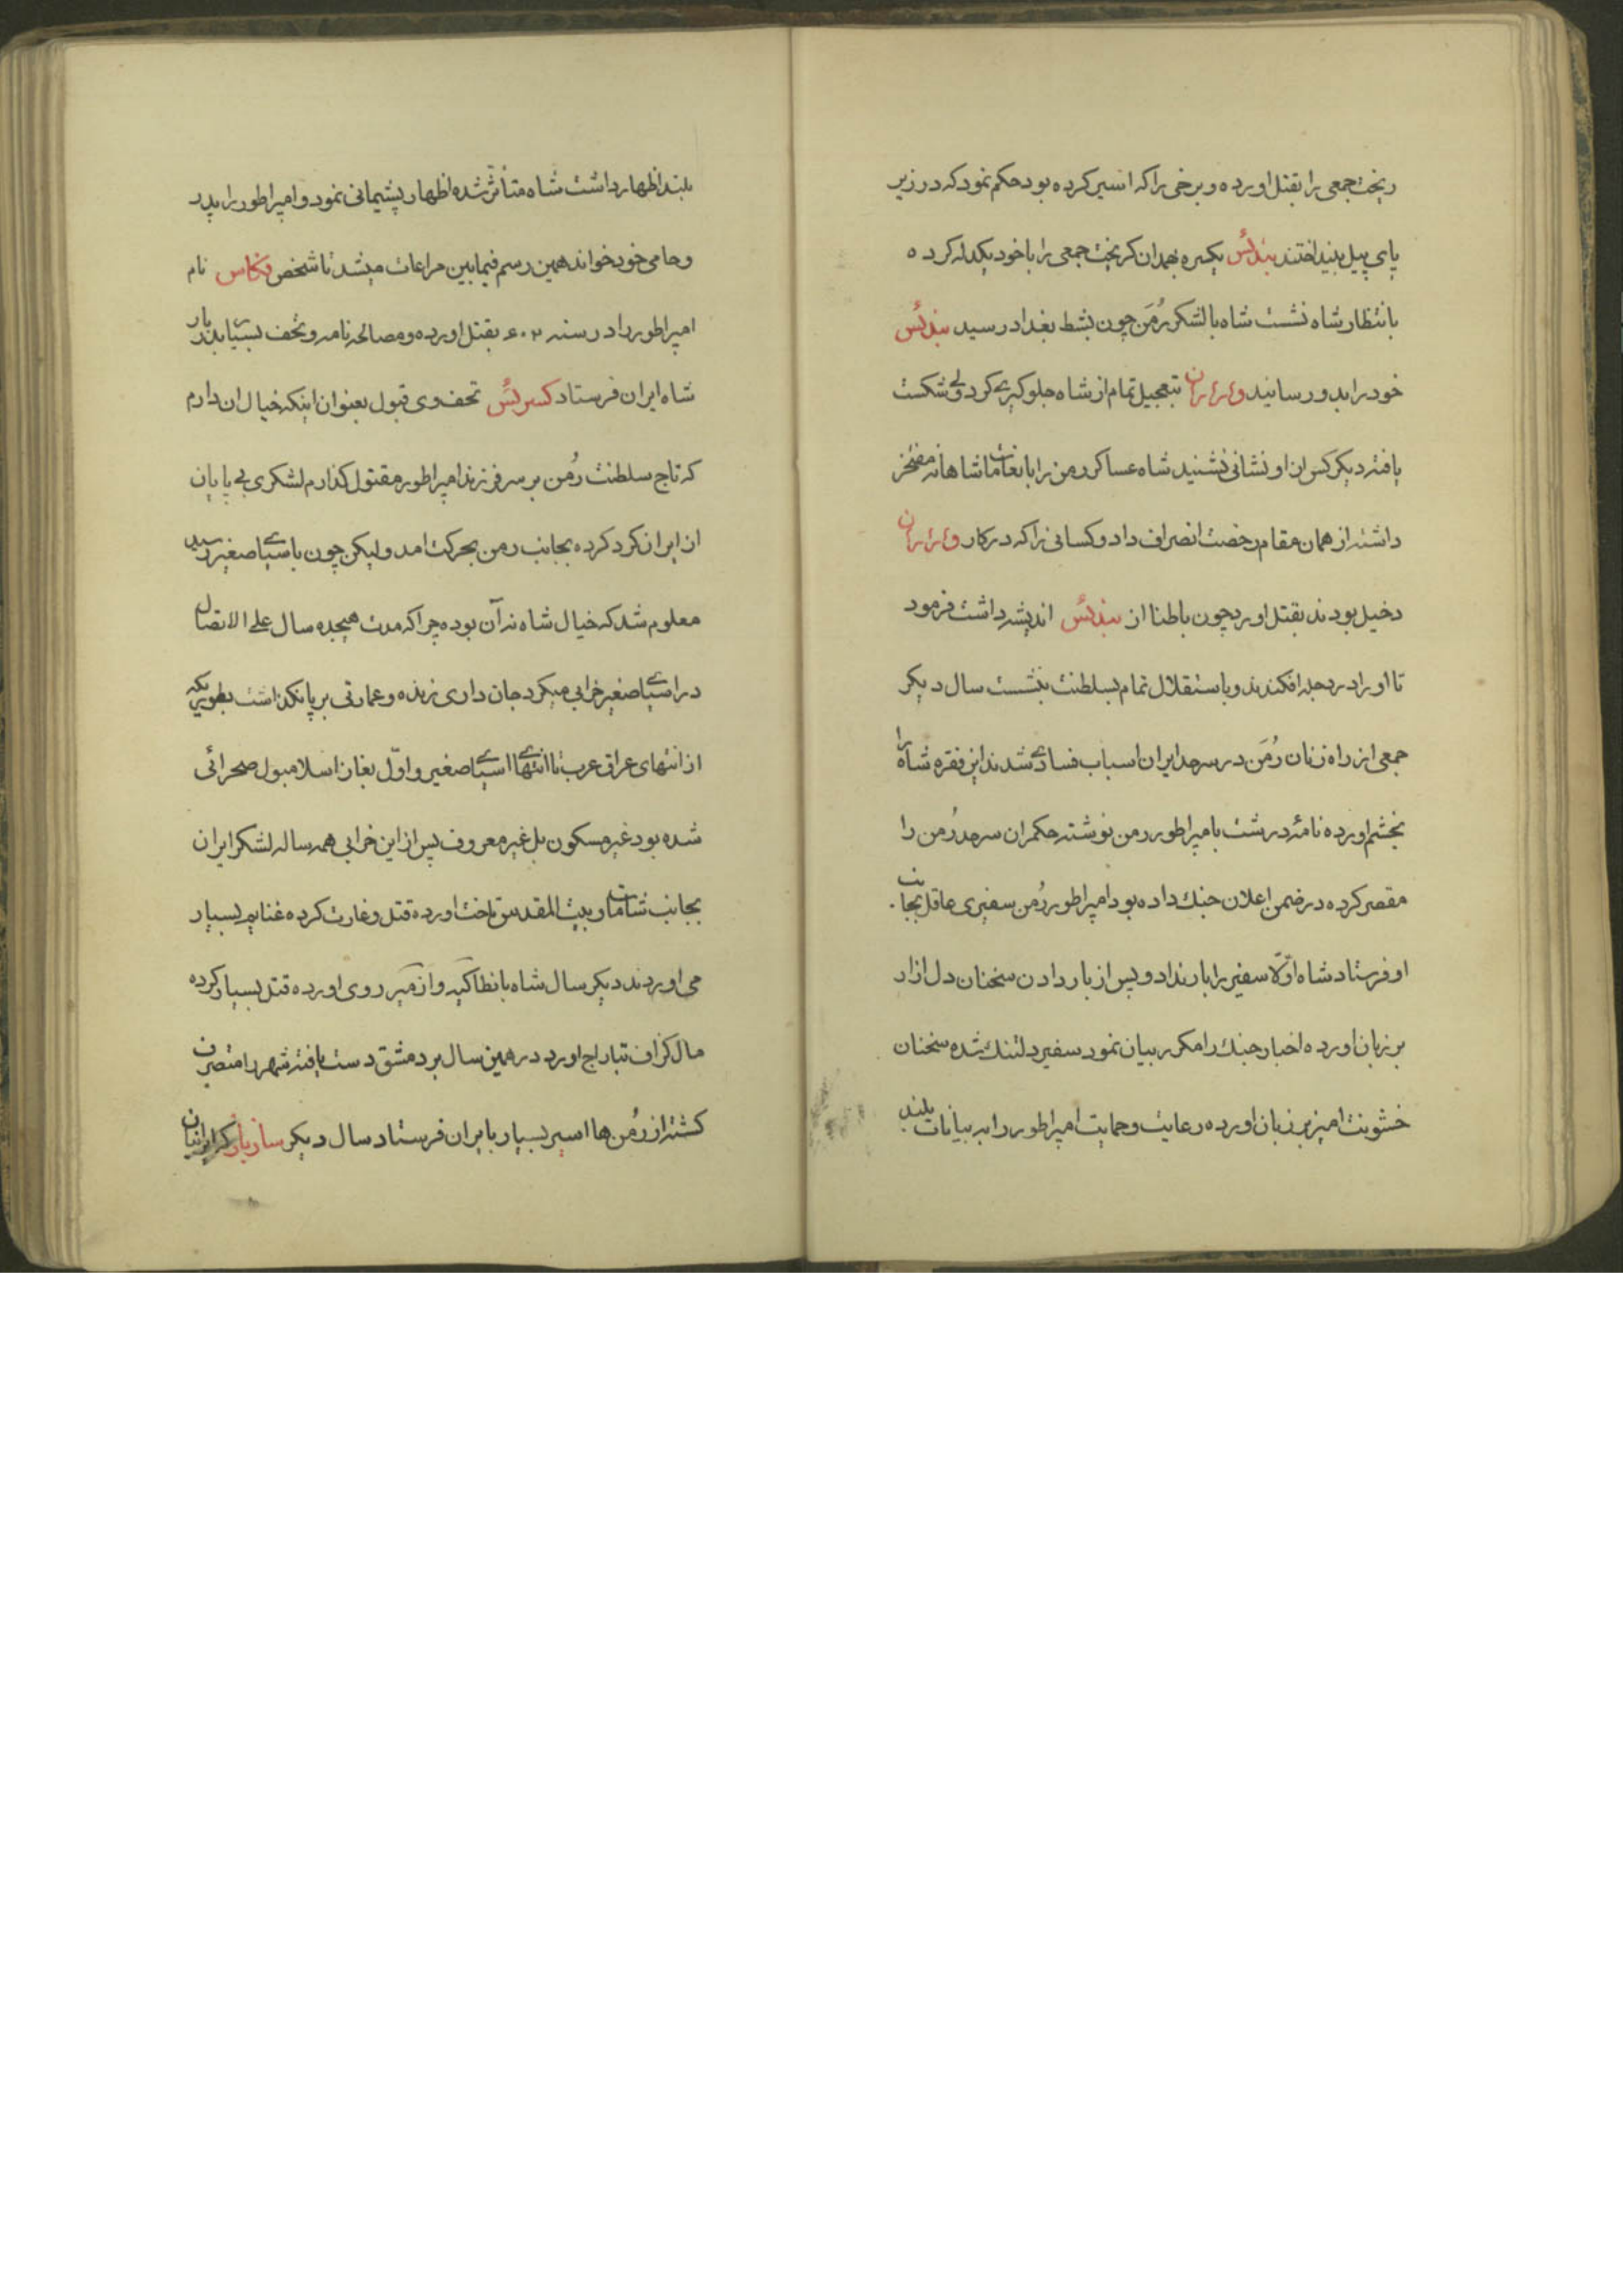 ریخت جمعی را بقتل اورده و برخی را که اسیر کرده بود حکم نمود که در زیر
پای پیل بیندافتند بندئس یکسره بهمدان کریخت جمعی را با خود یکدله کرده
بانتظار شاه نشست شاه با لشکر رُمَن چون بشط بغداد رسید بندئس
خود را بدو رسانید و تعجیل تمام از شاه جلوکیری کرد ولی شکست
یافته دیکر کس از او نشانی نشنید شاه عساکر رمن را با انعامات شاهانه مفتخر
داشته از همان مقام رخصت انصراف داد و کسانی را که در کار
دخیل بودند بقتل اورد چون باطنا از بندئس اندیشه داشت فرمود
تا او را در دجله افکندند و باستقلال تمام بسلطنت بنشست سال دیکر
جمعی از راه زنان رُمَن در سرحد ایران اسباب فسادی شدند این فقره شاه را
بخشم اورده نامهٔ درشت بامپراطور رمن نوشته حکمران سرحد رُمن را
مقصر کرده در ضمن اعلان جنك داده بود امپراطور رُمن سفیری عاقل بجانب
او فرستاد شاه اوّلا سفیر را بار نداد و پس از بار دادن سخنان دل ازار
بر زبان اورده اخبار جنك را مکرر بیان نمود سفیر دلتنك شده سخنان
خشونت امیز بر زبان اورده رعایت و حمایت امپراطور را به بیانات بلند
بلند اظهار داشت شاه متأثر شده اظهار پشیمانی نمود و امپراطور را پدر
و حامی خود خواند همین رسم فیمابین مراعات میشد تا شخص فکاس نام
امپراطور را در سنه ۶۰۲ بقتل اورده و مصالحه نامه و تحف بسیار بدربار
شاه ایران فرستاد کسرئس تحف وی قبول بعنوان اینکه خیال ان دارم
که تاج سلطنت رُمن بر سر فرزند امپراطور مقتول کذارم لشکری بی پایان
از ایران کرد کرده بجانب رمن بحرکت امد ولیکن چون باسیا صغیر رسید
معلوم شد که خیال شاه نه آن بوده چرا که مدت هیجده سال علی الاتصال
در اسیا صغیر خرابی میکرد جان داری زنده و عمارتی بر پا نکذاشت بطوریکه
از انتهای عراق عرب تا انتهای اسیا صغیر و اوّل بغاز اسلامبول صحرائی
شده بود غیر مسکون بل غیر معروف پس از این خرابی همه ساله لشکر ایران
بجانب شامات و بیت المقدس تاخت اورده قتل و غارت کرده غنایم بسیار
می اوردند دیکر سال شاه بانطاکیه و ازمیر روی اورده قتل بسیار کرده
مال کزاف بتاراج اورد در همین سال بر دمشق دست یافته شهر را متصرف
کشته از رُمن ها اسیر بسیار بایران فرستاد سال دیکر